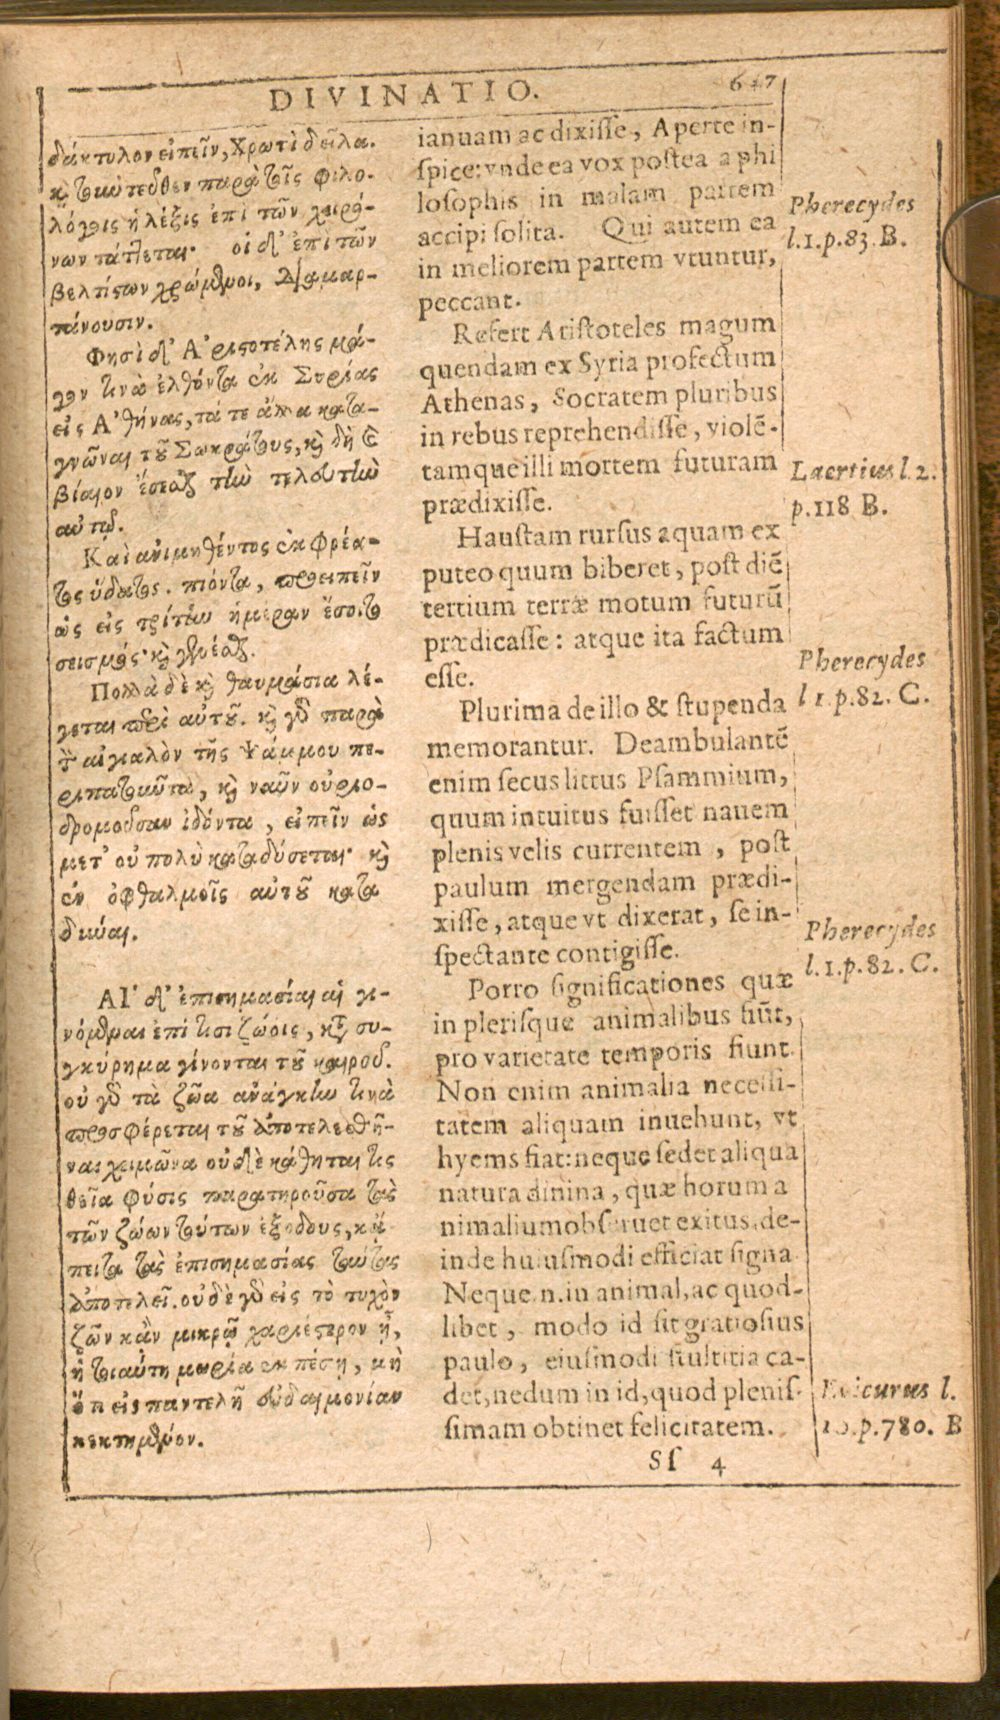 DIVINATIO.
647
δάκτυλον εἰπεῖν, Χροῒ δῆλα.
καὶ τοὐντεῦθεν παρὰ τοῖς φιλο-
λόγοις ἡ λέξις ἐπὶ τῶν χειρό-
νων τάττεται· οἱ δ' ἐπὶ τῶν
βελτίστων χρώμενοι, διαμαρ-
τάνουσιν.
Φησὶ δ' Ἀριστοτέλης μά-
γον τινὰ ἐλθόντα ἐκ Συρίας
εἰς Ἀθήνας, τά τε ἄλλα κατα-
γνῶναι τοῦ Σωκράτους, καὶ δὴ καὶ
βίαιον ἔσεσθαι τὴν τελευτὴν
αὐτῷ.
Καὶ ἀνιμηθέντος ἐκ φρέα-
τος ὕδατος. πιόντα, προειπεῖν
ὡς εἰς τρίτην ἡμέραν ἔσοιτο
σεισμός· καὶ γενέσθαι.
Πολλὰ δὲ καὶ θαυμάσια λέ-
γεται περὶ αὐτοῦ. καὶ γὰρ παρὰ
τὸν αἰγιαλὸν τῆς Ψάμμου πε-
ριπατοῦντα, καὶ ναῦν οὐριο-
δρομοῦσαν ἰδόντα, εἰπεῖν ὡς
μετ' οὐ πολὺ καταδύσεται· καὶ
ἐν ὀφθαλμοῖς αὐτοῦ κατα
δῦναι.
Αἱ δ' ἐπισημασίαι αἱ γι-
νόμεναι ἐπί τισι ζώοις, κατὰ συ-
γκύρημα γίνονται τοῦ καιροῦ.
οὐ γὰρ τὰ ζῶα ἀνάγκην τινὰ
προσφέρεται τοῦ ἀποτελεσθῆ-
ναι χειμῶνα οὐδὲ κάθηταί τις
θεῖα φύσις παρατηροῦσα τὰς
τῶν ζώων τούτων ἐξόδους, κἄ
πειτα τὰς ἐπισημασίας ταύτας
ἀποτελεῖ. οὐδὲ γὰρ εἰς τὸ τυχὸν
ζῶν κἂν μικρῷ χαριέστερον ᾖ,
ἡ τοιαύτη μωρία ἐκπέσῃ, μὴ
ὅτι εἰς παντελῆ εὐδαιμονίαν
κεκτημένον.
ianuam ac dixisse, Aperte in-
spice: vnde ea vox postea a phi
losophis in malam partem
accipi solita. Qui autem ea
in meliorem partem vtuntur,
peccant.
Refert Aristoteles magum
quendam ex Syria profectum
Athenas, Socratem pluribus
in rebus reprehendisse, violē-
tamque illi mortem futuram
prædixisse.
Haustam rursus aquam ex
puteo quum biberet, post diē
tertium terræ motum futurū
prædicasse: atque ita factum
esse.
Plurima de illo & stupenda
memorantur. Deambulantē
enim secus littus Psammium,
quum intuitus fuisset nauem
plenis velis currentem, post
paulum mergendam prædi-
xisse, atque vt dixerat, se in-
spectante contigisse.
Porro significationes quæ
in plerisque animalibus fiūt,
pro varietate temporis fiunt.
Non enim animalia necessi-
tatem aliquam inuehunt, vt
hyems fiat: neque sedet aliqua
natura diuina, quæ horum a
nimalium obseruet exitus, de-
inde huiusmodi efficiat signa
Neque.n.in animal, ac quod-
libet, modo id sit gratiosius
paulo, eiusmodi stultitia ca-
det, nedum in id, quod plenis-
simam obtinet felicitatem.
Sſ 4
Pherecydes
l.1.p.83.B.
Laertius l.2.
p.118 B.
Pherecydes
l 1.p.82.C.
Pherecydes
l.1.p.82.C.
Epicurus l.
10.p.780. B